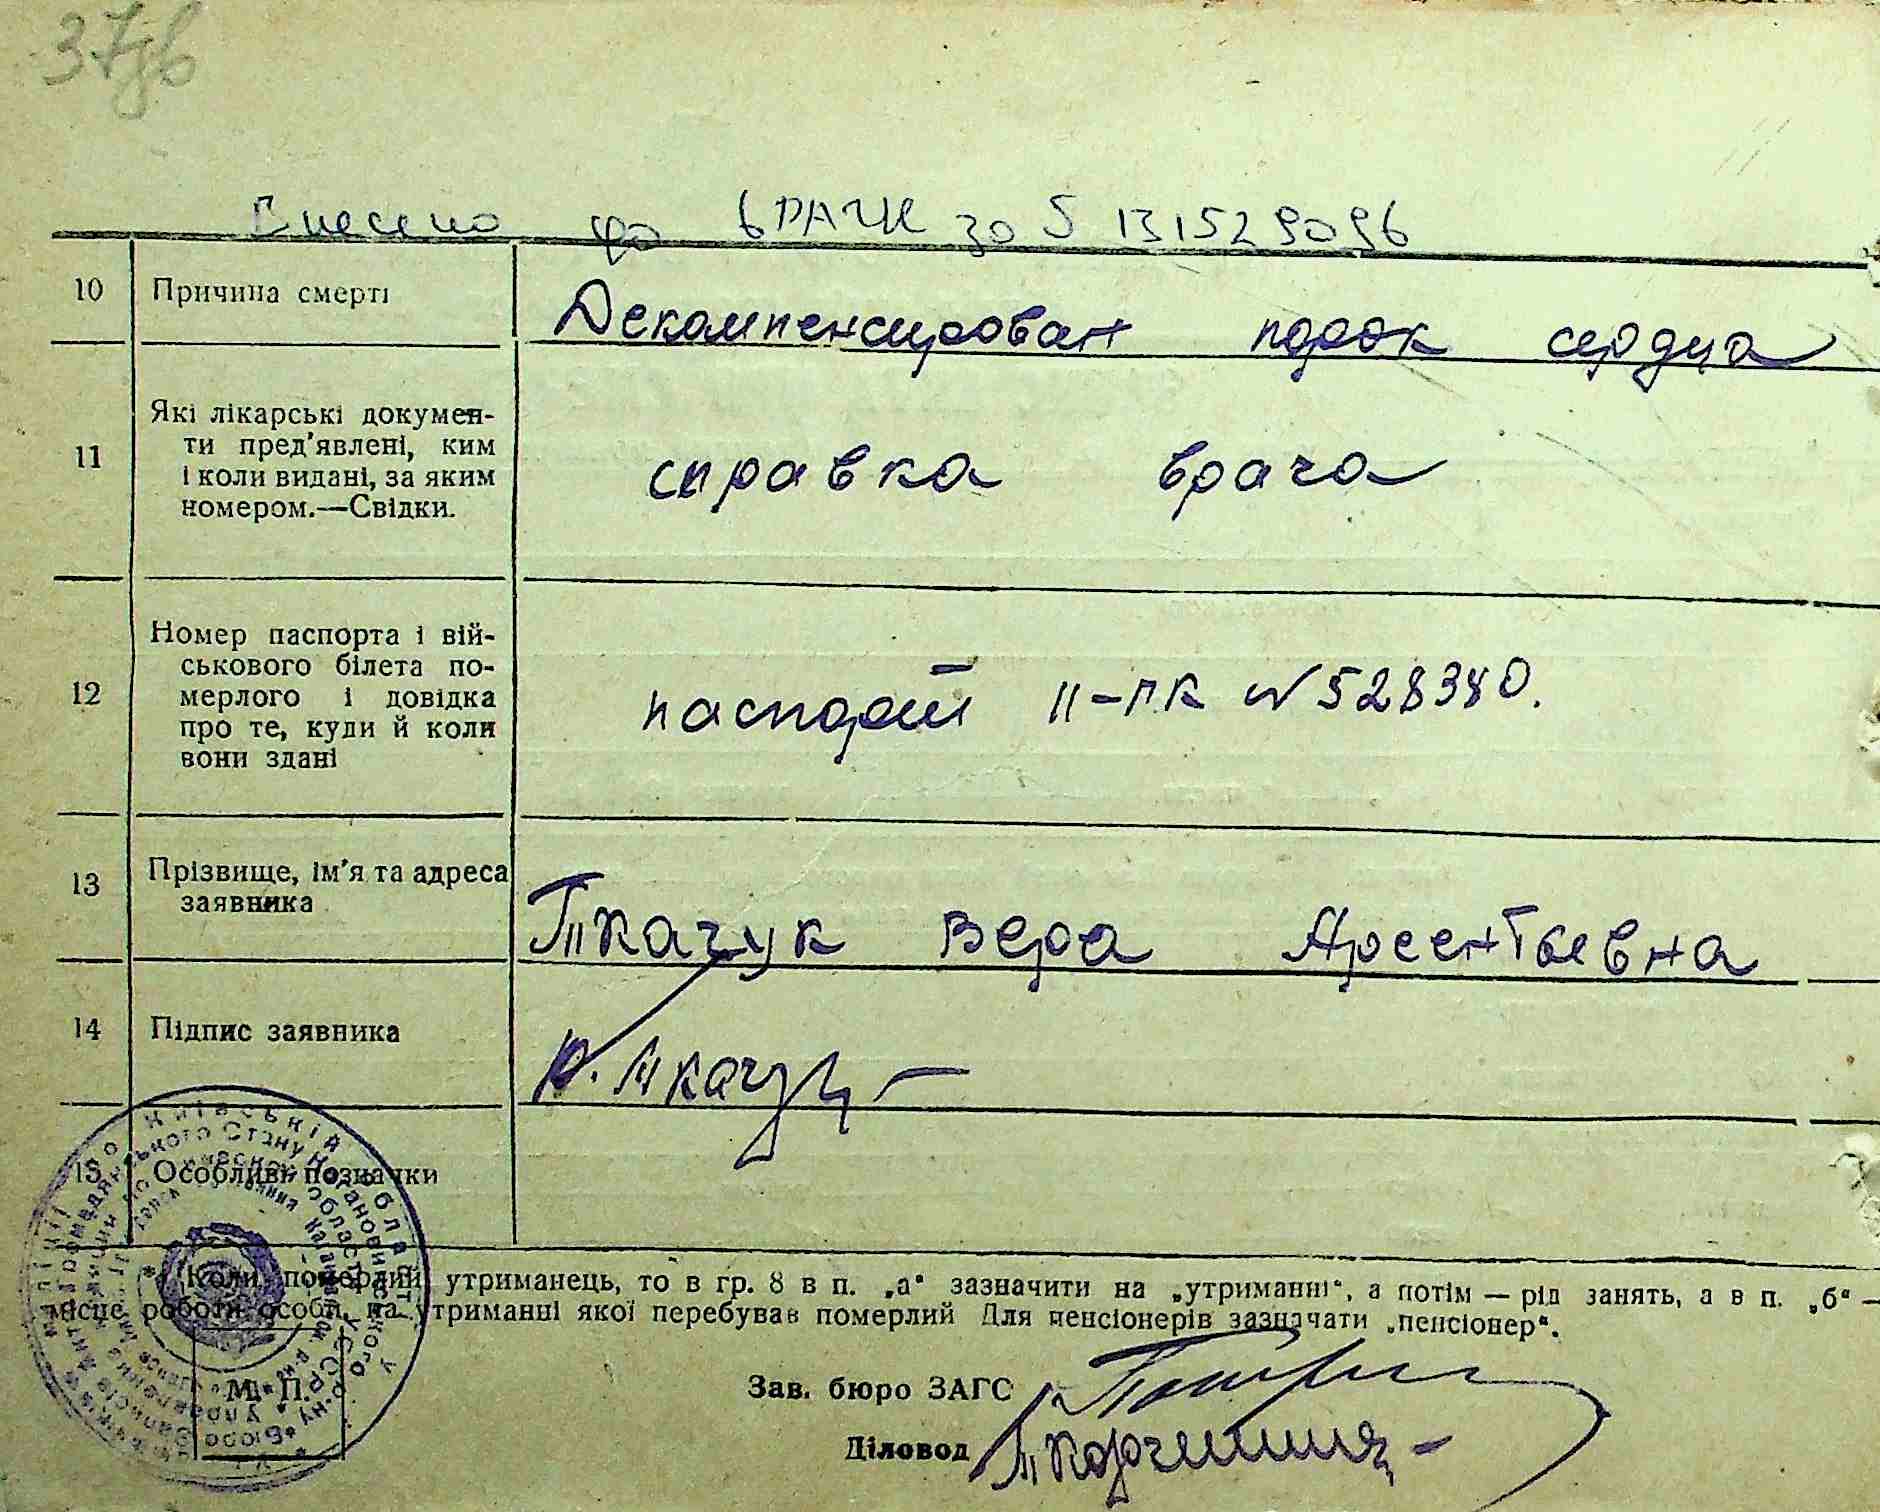 37зв
Внесено до ВРАЦС за § 13152909б
10 Причина смерті Декомпенсирован порок сердца
11 Які лікарські докумен-
ти пред'явлені, ким
і коли видані, за яким
номером.—Свідки.
справка врача
12 Номер паспорта і вій-
ськового білета по-
мерлого і довідка
про те, куди й коли
вони здані
паспорт II-ПК №528380.
13 Прізвище, ім'я та адреса
заявника
Ткачук Вера Арсентьевна
14 Підпис заявника
В. Ткачук
15 Особливі позначки
Коли померлий утриманець, то в гр. 8 в п. „а“ зазначити на „утриманні“, а потім — рід занять, а в п. „б“ —
місце роботи особи, на утриманні якої перебував померлий Для пенсіонерів зазначати „пенсіонер“.
М. П.
Зав. бюро ЗАГС
Діловод